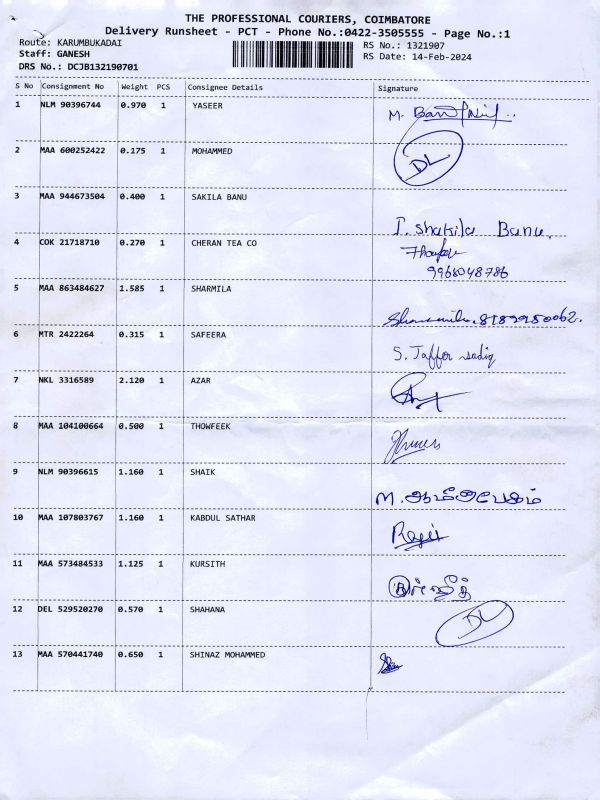 THE PROFESSIONAL COURIERS, COIMBATORE
Delivery Runsheet - PCT - Phone No.:0422-3505555 - Page No.:1
Route: KARUMBUKADAI RS No.: 1321907
Staff: GANESH RS Date: 14-Feb-2024
DRS No.: DCJB132190701
S No Consignment No Weight PCS Consignee Details Signature
1 NLM 90396744 0.970 1 YASEER M.
2 MAA 600252422 0.175 1 MOHAMMED DL
3 MAA 944673504 0.400 1 SAKILA BANU I. Shakila Banu.
4 COK 21718710 0.270 1 CHERAN TEA CO
9968048786
5 MAA 863484627 1.585 1 SHARMILA 8189950062.
6 MTR 2422264 0.315 1 SAFEERA S. Jaffer sadiq
7 NKL 3316589 2.120 1 AZAR
8 MAA 104100664 0.500 1 THOWFEEK
9 NLM 90396615 1.160 1 SHAIK M.
10 MAA 107803767 1.160 1 KABDUL SATHAR
11 MAA 573484533 1.125 1 KURSITH
12 DEL 529520270 0.570 1 SHAHANA DL
13 MAA 570441740 0.650 1 SHINAZ MOHAMMED